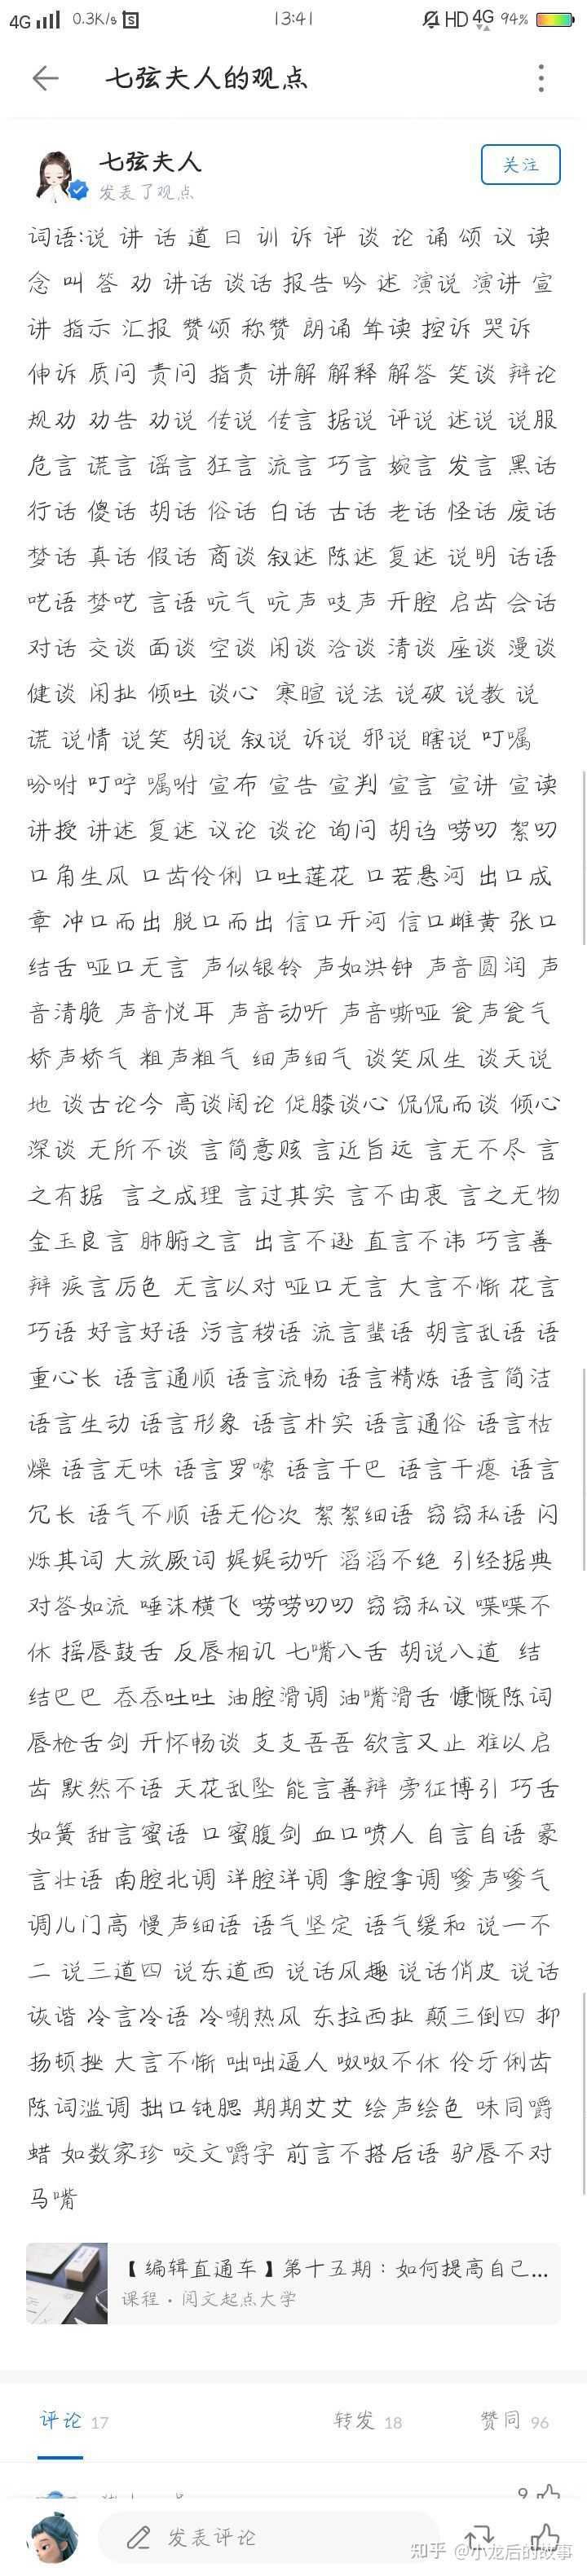 4G 0.3K/s 13:41 HD 4G 94%
七弦夫人的观点
七弦夫人
关注
发表了观点
词语:说 讲 话 道 曰 训 诉 评 谈 论 诵 颂 议 读
念 叫 答 劝 讲话 谈话 报告 吟 述 演说 演讲 宣
讲 指示 汇报 赞颂 称赞 朗诵 耸读 控诉 哭诉
伸诉 质问 责问 指责 讲解 解释 解答 笑谈 辩论
规劝 劝告 劝说 传说 传言 据说 评说 述说 说服
危言 谎言 谣言 狂言 流言 巧言 婉言 发言 黑话
行话 傻话 胡话 俗话 白话 古话 老话 怪话 废话
梦话 真话 假话 商谈 叙述 陈述 复述 说明 话语
呓语 梦呓 言语 吭气 吭声 吱声 开腔 启齿 会话
对话 交谈 面谈 空谈 闲谈 洽谈 清谈 座谈 漫谈
健谈 闲扯 倾吐 谈心 寒暄 说法 说破 说教 说
谎 说情 说笑 胡说 叙说 诉说 邪说 瞎说 叮嘱
吩咐 叮咛 嘱咐 宣布 宣告 宣判 宣言 宣讲 宣读
讲授 讲述 复述 议论 谈论 询问 胡诌 唠叨 絮叨
口角生风 口齿伶俐 口吐莲花 口若悬河 出口成
章 冲口而出 脱口而出 信口开河 信口雌黄 张口
结舌 哑口无言 声似银铃 声如洪钟 声音圆润 声
音清脆 声音悦耳 声音动听 声音嘶哑 瓮声瓮气
娇声娇气 粗声粗气 细声细气 谈笑风生 谈天说
地 谈古论今 高谈阔论 促膝谈心 侃侃而谈 倾心
深谈 无所不谈 言简意赅 言近旨远 言无不尽 言
之有据 言之成理 言过其实 言不由衷 言之无物
金玉良言 肺腑之言 出言不逊 直言不讳 巧言善
辩 疾言厉色 无言以对 哑口无言 大言不惭 花言
巧语 好言好语 污言秽语 流言蜚语 胡言乱语 语
重心长 语言通顺 语言流畅 语言精炼 语言简洁
语言生动 语言形象 语言朴实 语言通俗 语言枯
燥 语言无味 语言罗嗦 语言干巴 语言干瘪 语言
冗长 语气不顺 语无伦次 絮絮细语 窃窃私语 闪
烁其词 大放厥词 娓娓动听 滔滔不绝 引经据典
对答如流 唾沫横飞 唠唠叨叨 窃窃私议 喋喋不
休 摇唇鼓舌 反唇相讥 七嘴八舌 胡说八道 结
结巴巴 吞吞吐吐 油腔滑调 油嘴滑舌 慷慨陈词
唇枪舌剑 开怀畅谈 支支吾吾 欲言又止 难以启
齿 默然不语 天花乱坠 能言善辩 旁征博引 巧舌
如簧 甜言蜜语 口蜜腹剑 血口喷人 自言自语 豪
言壮语 南腔北调 洋腔洋调 拿腔拿调 嗲声嗲气
调儿门高 慢声细语 语气坚定 语气缓和 说一不
二 说三道四 说东道西 说话风趣 说话俏皮 说话
诙谐 冷言冷语 冷嘲热风 东拉西扯 颠三倒四 抑
扬顿挫 大言不惭 咄咄逼人 呶呶不休 伶牙俐齿
陈词滥调 拙口钝腮 期期艾艾 绘声绘色 味同嚼
蜡 如数家珍 咬文嚼字 前言不搭后语 驴唇不对
马嘴
【编辑直通车】第十五期：如何提高自己...
课程·阅文起点大学
评论 17 转发 18 赞同 96
9
发表评论
知乎 @小龙后的故事